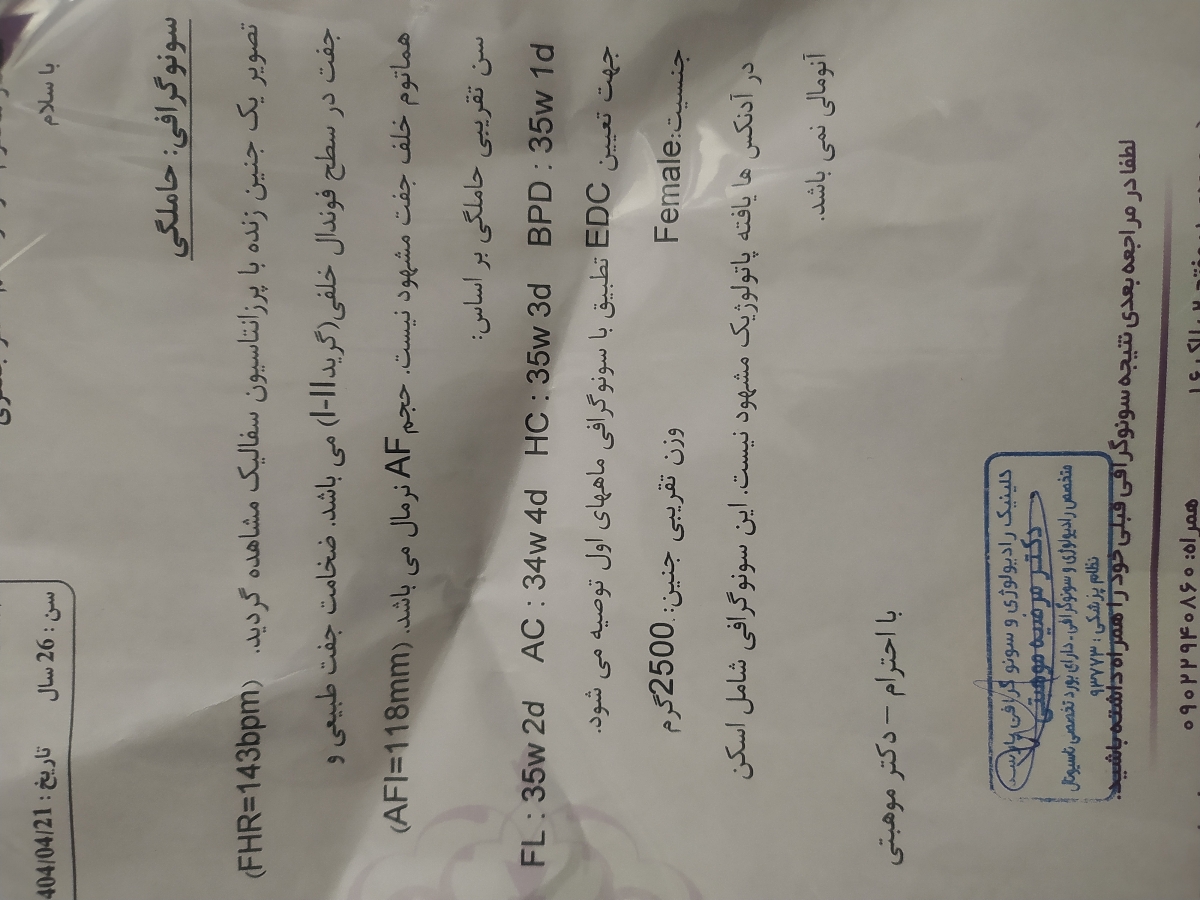 سن : 26 سال تاریخ : 404/04/21
سونوگرافی: حاملگی
با سلام
تصویر یک جنین زنده با پرزانتاسیون سفالیک مشاهده گردید. (FHR=143bpm)
جفت در سطح فوندال خلفی(گرید I-II) می باشد. ضخامت جفت طبیعی و
هماتوم خلف جفت مشهود نیست. حجم AF نرمال می باشد. (AFI=118mm)
سن تقریبی حاملگی بر اساس:
FL : 35w 2d AC : 34w 4d HC : 35w 3d BPD : 35w 1d
جهت تعیین EDC تطبیق با سونوگرافی ماههای اول توصیه می شود.
جنسیت:Female وزن تقریبی جنین: 2500گرم
در آدنکس ها یافته پاتولوژیک مشهود نیست. این سونوگرافی شامل اسکن
آنومالی نمی باشد.
با احترام – دکتر موهبتی
کلینیک رادیولوژی و سونوگرافی
دکتر مرضیه موهبتی
متخصص رادیولوژی و سونوگرافی - دارای بورد تخصصی
نظام پزشکی : ۹۳۷۷۳
لطفا در مراجعه بعدی نتیجه سونوگرافی قبلی خود را همراه داشته باشید.
همراه: ۰۹۰۲۲۹۴۰۸۶۰